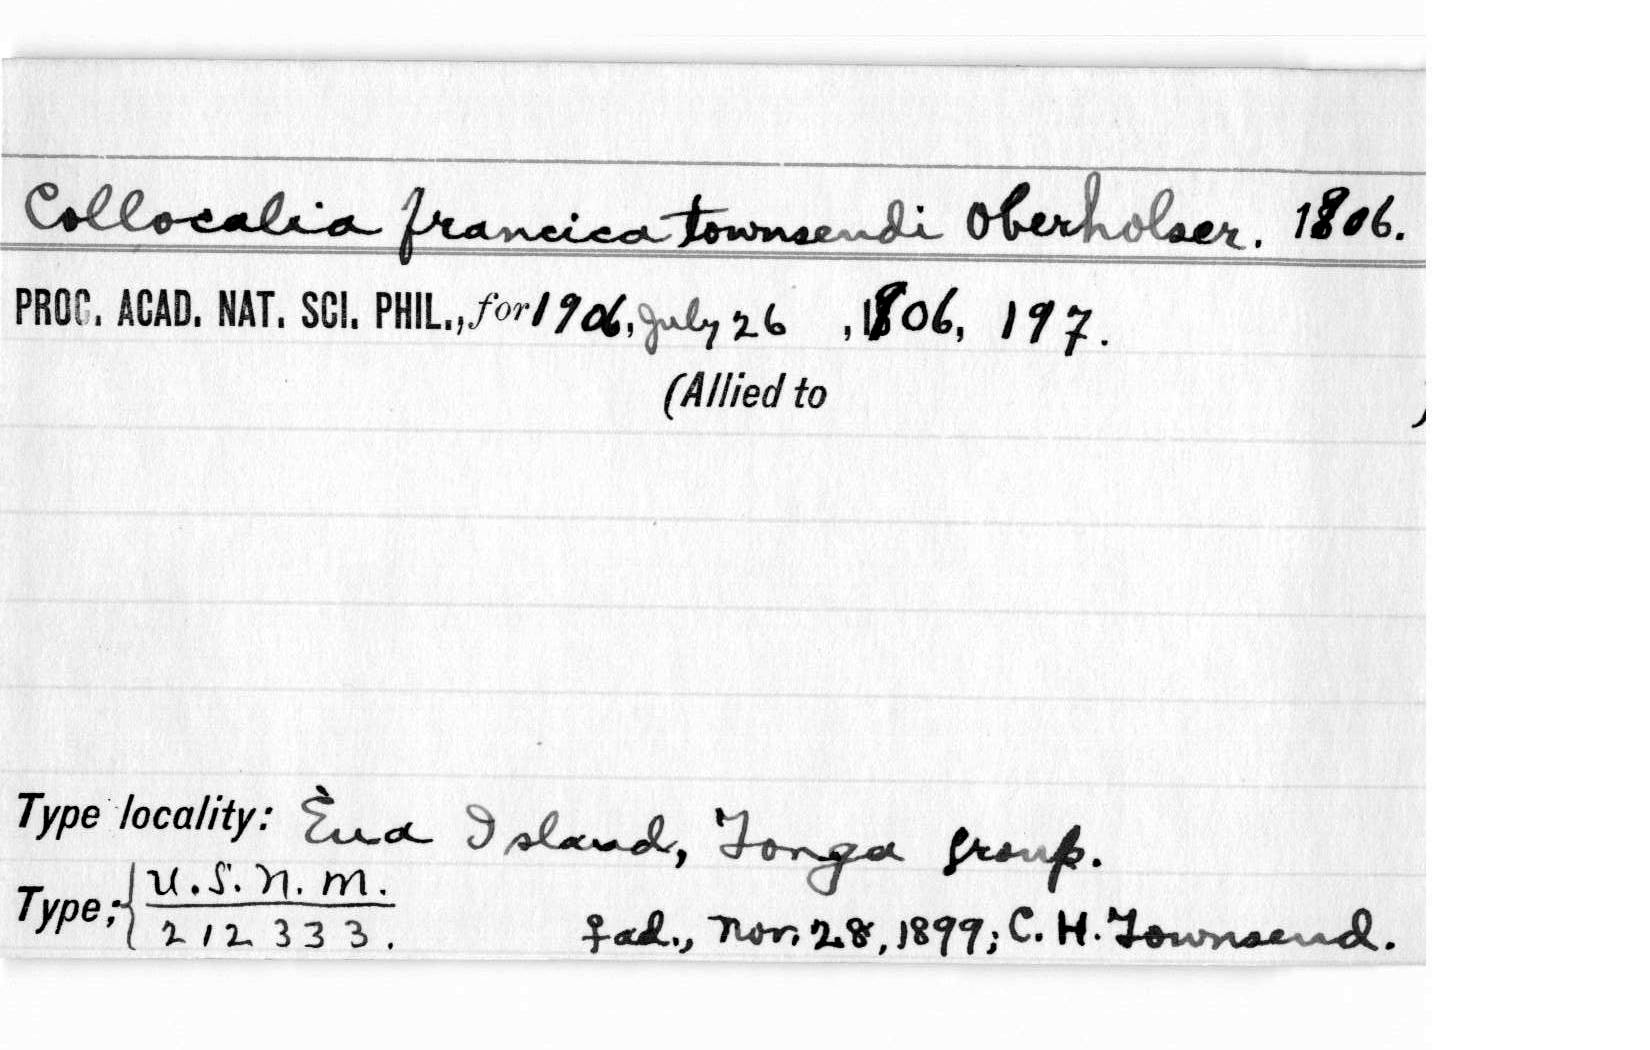 Collocalia francica townsendi Oberholser. 1906.
PROC. ACAD. NAT. SCI. PHIL., for 1906, July 26, 1906, 197.
(Allied to )
Type locality: Èua Island, Tonga group.
Type: { U.S.N.M.
212333. ♀ ad., Nov. 28, 1899; C. H. Townsend.